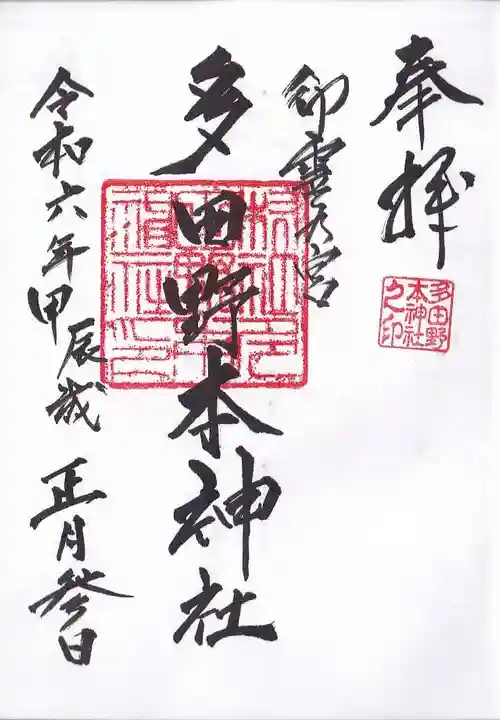 奉拝
多田野
本神社
之印
御霊大宮
多田野本神社
令和六年甲辰歳 正月参日